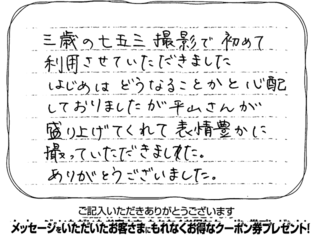 三歳の七五三撮影で初めて
利用させていただきました
はじめは どうなることかと心配
しておりましたが平山さんが
盛り上げてくれて表情豊かに
撮っていただきました。
ありがとうございました。
ご記入いただきありがとうございます
メッセージをいただいたお客さまにもれなくお得なクーポン券プレゼント!